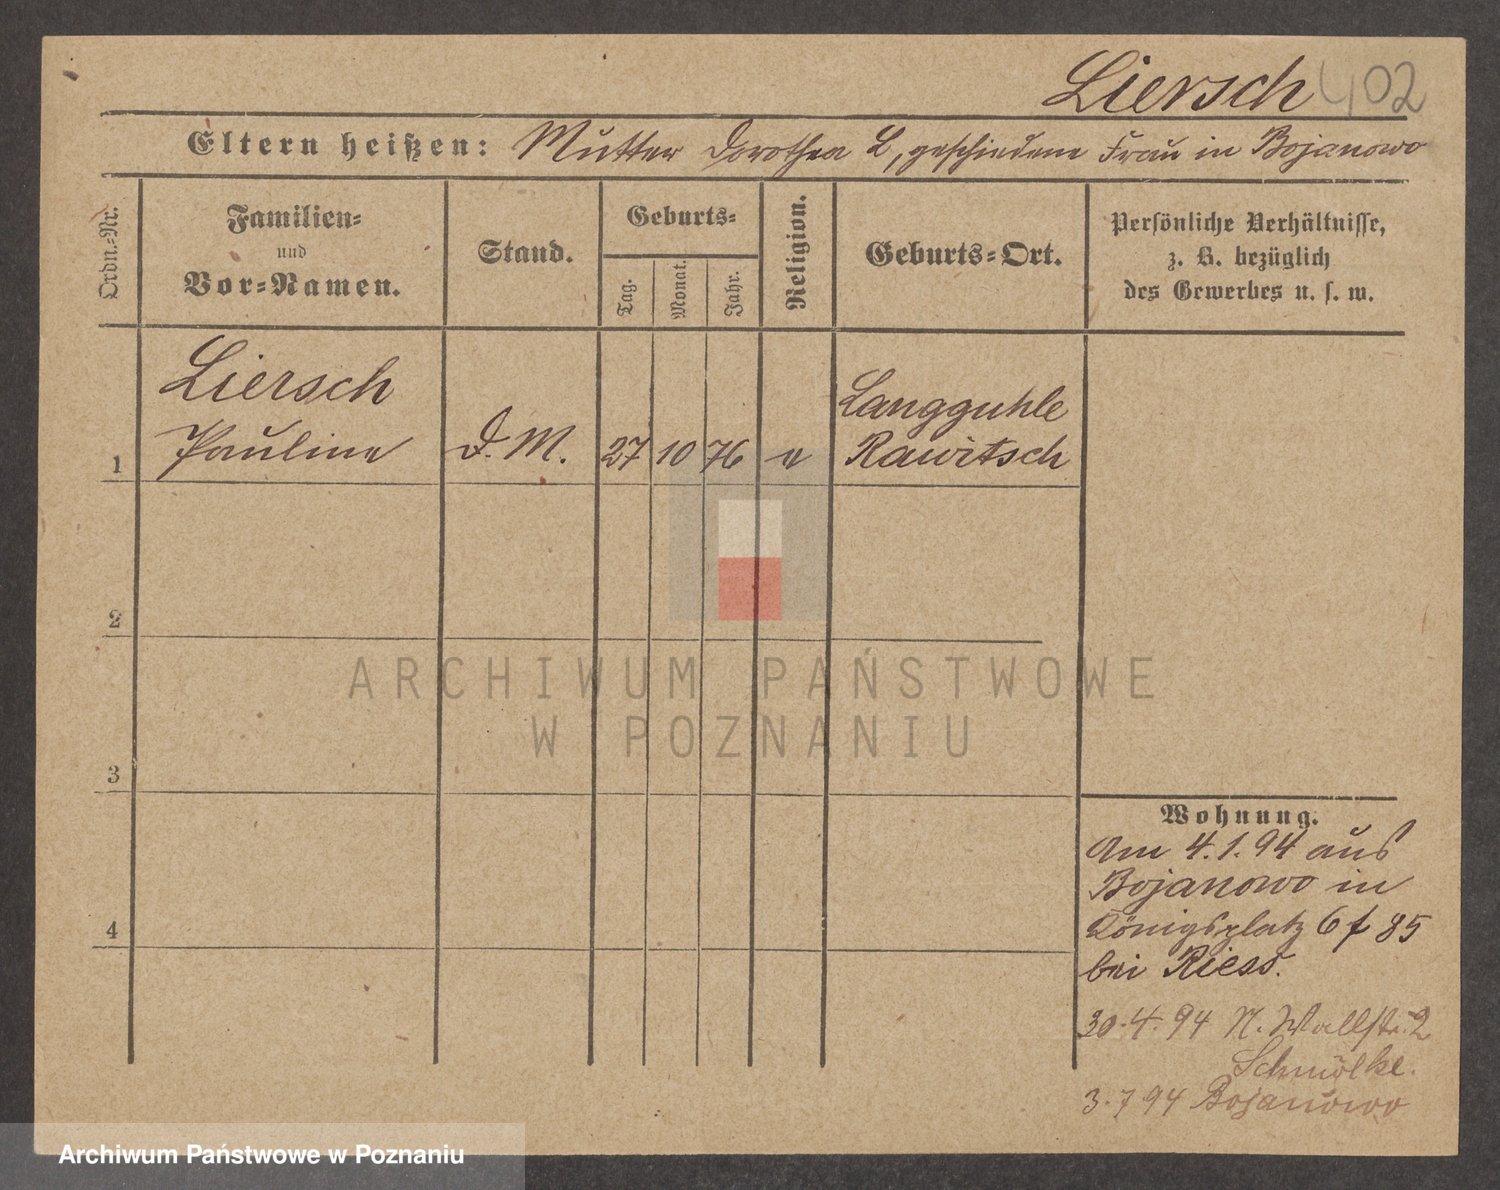 Liersch 402
Eltern heißen: Mutter Dorothea L, geschiedene Frau in Bojanowo
Ordn.-Nr.
Familien-
und
Vor-Namen.
Stand.
Geburts-
Tag.
Monat.
Jahr.
Religion.
Geburts-Ort.
Persönliche Verhältnisse,
z. B. bezüglich
des Gewerbes u. s. w.
1
Liersch
Pauline
D. M.
27 10 76
e
Langguhle
Rawitsch
2
3
4
ARCHIWUM PAŃSTWOWE
W POZNANIU
Wohnung.
Am 4.1.94 aus
Bojanowo in
Königsplatz 6 f 85
bei Riess.
30.4.94 N. Wallstr. 2
Schmölke.
3.7.94 Bojanowo
Archiwum Państwowe w Poznaniu